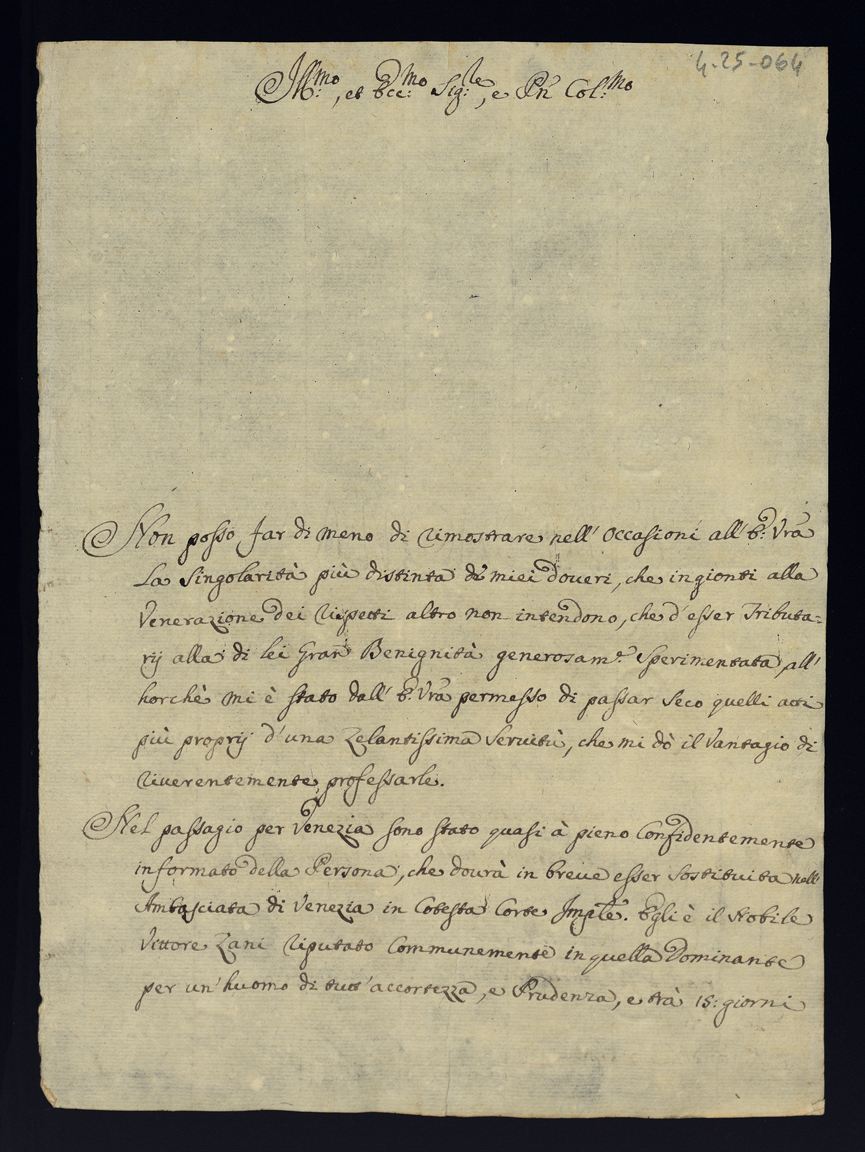 4-25-064
Ill:mo, et Ecc:mo Sig:re, e Pñ Col:mo
Non posso far di meno di rimostrare nell' occasioni all' E: Vrã
La singolarità più distinta de miei doveri, che ingionti alla
Venerazione dei rispetti altro non intendono, che d'esser Tributa=
rij alla di lei gran Benignità generosam:e sperimentata, all'
horchè mi è stato dall' E: Vrã permesso di passar seco quelli atti
più proprij d'una zelantissima servitù, che mi dò il vantagio di
riverentemente professarle.
Nel passagio per Venezia sono stato quasi à pieno confidentemente
informato della Persona, che dovrà in breve esser sostituita nell'
Ambasciata di Venezia in cotesta Corte Imple. Egli è il Nobile
Vittore Zani riputato communemente in quella Dominante
per un' huomo di tutt' accortezza, e Prudenza, e trà 15: giorni